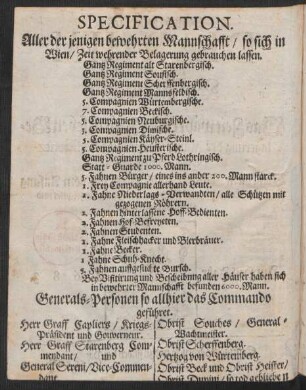 SPECIFICATION.
Aller der jenigen bewehrten Mannschafft / so sich in
Wien / Zeit wehrender Belagerung gebrauchen lassen.
Gantz Regiment alt Starenbergisch.
Gantz Regiment
Gantz Regiment Scherffenbergisch.
Gantz Regiment Mannsfeldisch.
5. Compagnien Würtenbergische.
7. Compagnien Beckisch.
5. Compagnien Neuburgische.
3. Compagnien
5. Compagnien Käyser-Steinl.
5. Compagnien Heisterische.
Gantz Regiment zu Pferd Lothringisch.
Statt-Guarde 1000. Mann.
5. Fahnen Bürger / eines ins ander 200. Mann starck.
1. Frey Compagnie allerhand Leute.
2. Fahne Niederlags-Verwandten / alle Schützen mit
gezogenen Röhrern.
2. Fahnen hinterlassene Hoff-Bedienten.
2. Fahnen Hof-Befreyeten.
2. Fahnen Studenten.
1. Fahne Fleischhacker und Bierbräuer.
1. Fahne Becker.
1. Fahne Schuh-Knecht.
5. Fahnen auffgesuchte Bursch.
Bey Visitirung und Beschreibung aller Häuser haben sich
in bewehrter Mannschafft befunden 6000. Mann.
Generals-Personen so allhier das Commando
geführet.
Herr Graff Capliers / Kriegs-
Präsident und Gouverneur.
Herr Graff Starenberg Com-
mendant / und
General Sereni / Vice-Commen-
Obrist Souches / General-
Wachtmeister.
Obrist Scherffenberg.
Hertzog von Würtenberg.
Obrist Beck und Obrist Heister /